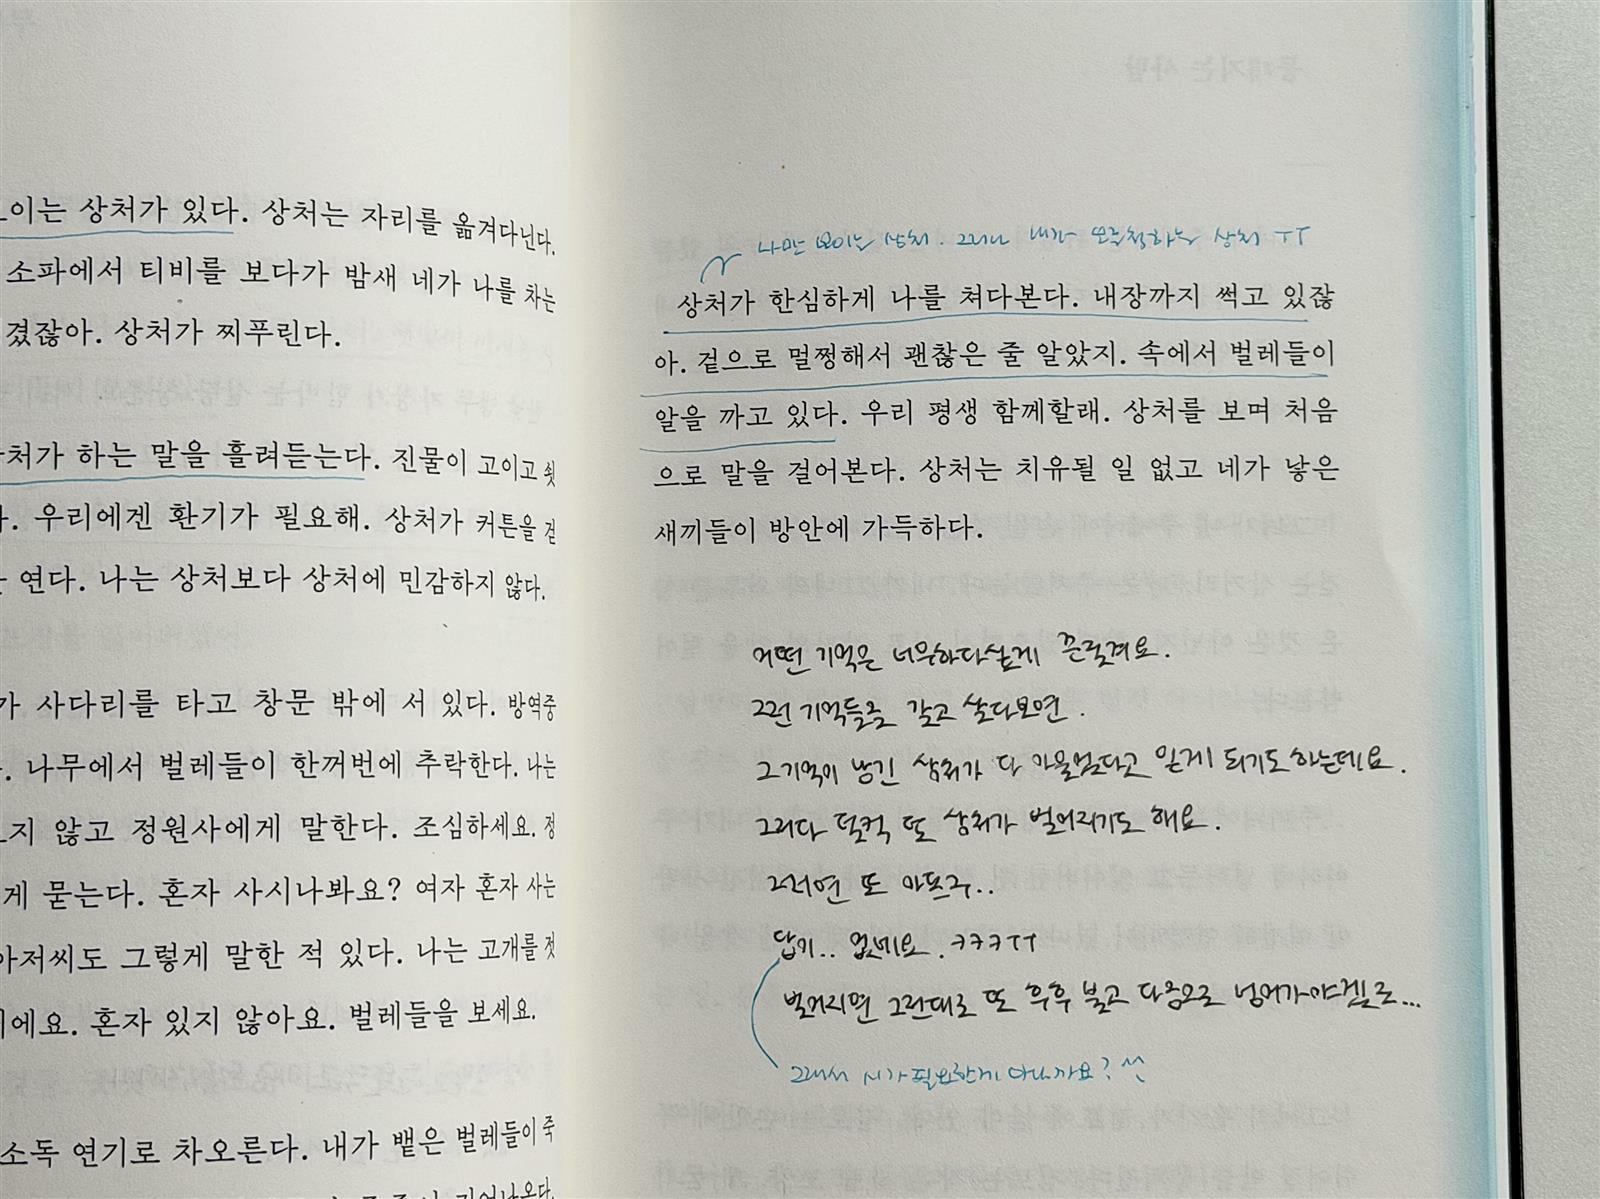 이는 상처가 있다. 상처는 자리를 옮겨다닌다.
소파에서 티비를 보다가 밤새 네가 나를 차는
겼잖아. 상처가 찌푸린다.
처가 하는 말을 흘려듣는다. 진물이 고이고 쇳
. 우리에겐 환기가 필요해. 상처가 커튼을 걷
연다. 나는 상처보다 상처에 민감하지 않다.
가 사다리를 타고 창문 밖에 서 있다. 방역중
. 나무에서 벌레들이 한꺼번에 추락한다. 나는
지 않고 정원사에게 말한다. 조심하세요. 정
게 묻는다. 혼자 사시나봐요? 여자 혼자 사는
아저씨도 그렇게 말한 적 있다. 나는 고개를 젓
에요. 혼자 있지 않아요. 벌레들을 보세요.
소독 연기로 차오른다. 내가 뱉은 벌레들이 죽
나만 보이는 상처. 그러나 내가 모른척하는 상처 ㅜㅜ
상처가 한심하게 나를 쳐다본다. 내장까지 썩고 있잖
아. 겉으로 멀쩡해서 괜찮은 줄 알았지. 속에서 벌레들이
알을 까고 있다. 우리 평생 함께할래. 상처를 보며 처음
으로 말을 걸어본다. 상처는 치유될 일 없고 네가 낳은
새끼들이 방안에 가득하다.
어떤 기억은 너무하다싶게 끈질겨요.
그런 기억들을 갖고 살다보면.
그 기억이 남긴 상처가 다 아물었다고 믿게 되기도 하는데요.
그러다 덜컥 또 상처가 벌어지기도 해요.
그러면 또 아프구..
답이.. 없네요. ㅋㅋㅋㅜㅜ
벌어지면 그런대로 또 후후 불고 다음으로 넘어가야겠죠...
그래서 시가 필요한게 아닐까요? ^^